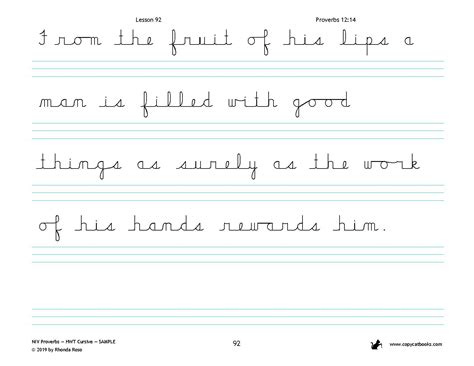 Lesson 92 Proverbs 12:14
From the fruit of his lips a
man is filled with good
things as surely as the work
of his hands rewards him.
NIV Proverbs ~ HWT Cursive ~ SAMPLE
© 2019 by Rhonda Reso 92 www.copycatbooks.com